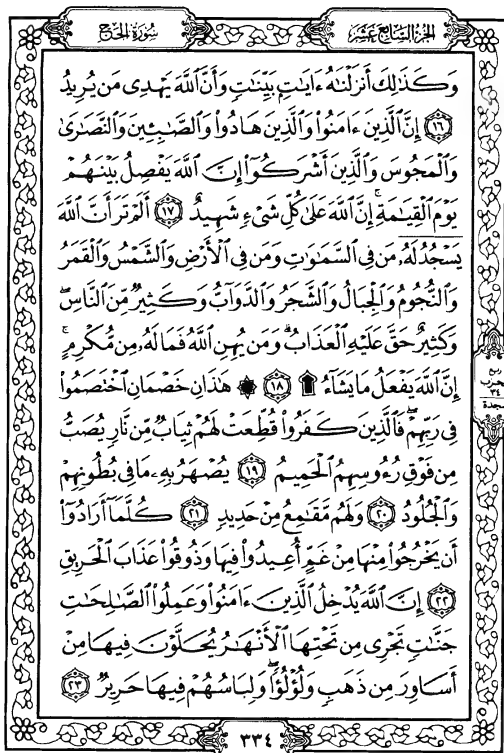 سُورَةُ الحَجّ
الجزء السابع عشر
وَكَذَٰلِكَ أَنزَلْنَٰهُ ءَايَٰتٍۭ بَيِّنَٰتٍ وَأَنَّ ٱللَّهَ يَهْدِى مَن يُرِيدُ
١٦ إِنَّ ٱلَّذِينَ ءَامَنُوا۟ وَٱلَّذِينَ هَادُوا۟ وَٱلصَّٰبِـِٔينَ وَٱلنَّصَٰرَىٰ
وَٱلْمَجُوسَ وَٱلَّذِينَ أَشْرَكُوٓا۟ إِنَّ ٱللَّهَ يَفْصِلُ بَيْنَهُمْ
يَوْمَ ٱلْقِيَٰمَةِ ۚ إِنَّ ٱللَّهَ عَلَىٰ كُلِّ شَىْءٍ شَهِيدٌ ١٧ أَلَمْ تَرَ أَنَّ ٱللَّهَ
يَسْجُدُ لَهُۥ مَن فِى ٱلسَّمَٰوَٰتِ وَمَن فِى ٱلْأَرْضِ وَٱلشَّمْسُ وَٱلْقَمَرُ
وَٱلنُّجُومُ وَٱلْجِبَالُ وَٱلشَّجَرُ وَٱلدَّوَآبُّ وَكَثِيرٌ مِّنَ ٱلنَّاسِ ۖ
وَكَثِيرٌ حَقَّ عَلَيْهِ ٱلْعَذَابُ ۗ وَمَن يُهِنِ ٱللَّهُ فَمَا لَهُۥ مِن مُّكْرِمٍ ۚ
إِنَّ ٱللَّهَ يَفْعَلُ مَا يَشَآءُ ۩ ١٨ ۞ هَٰذَانِ خَصْمَانِ ٱخْتَصَمُوا۟
فِى رَبِّهِمْ ۖ فَٱلَّذِينَ كَفَرُوا۟ قُطِّعَتْ لَهُمْ ثِيَابٌ مِّن نَّارٍ يُصَبُّ
مِن فَوْقِ رُءُوسِهِمُ ٱلْحَمِيمُ ١٩ يُصْهَرُ بِهِۦ مَا فِى بُطُونِهِمْ
وَٱلْجُلُودُ ٢٠ وَلَهُم مَّقَٰمِعُ مِنْ حَدِيدٍ ٢١ كُلَّمَآ أَرَادُوٓا۟
أَن يَخْرُجُوا۟ مِنْهَا مِنْ غَمٍّ أُعِيدُوا۟ فِيهَا وَذُوقُوا۟ عَذَابَ ٱلْحَرِيقِ
٢٢ إِنَّ ٱللَّهَ يُدْخِلُ ٱلَّذِينَ ءَامَنُوا۟ وَعَمِلُوا۟ ٱلصَّٰلِحَٰتِ
جَنَّٰتٍ تَجْرِى مِن تَحْتِهَا ٱلْأَنْهَٰرُ يُحَلَّوْنَ فِيهَا مِنْ
أَسَاوِرَ مِن ذَهَبٍ وَلُؤْلُؤًا ۖ وَلِبَاسُهُمْ فِيهَا حَرِيرٌ ٢٣
ربع
٣٤
سجدة
٣٣٤